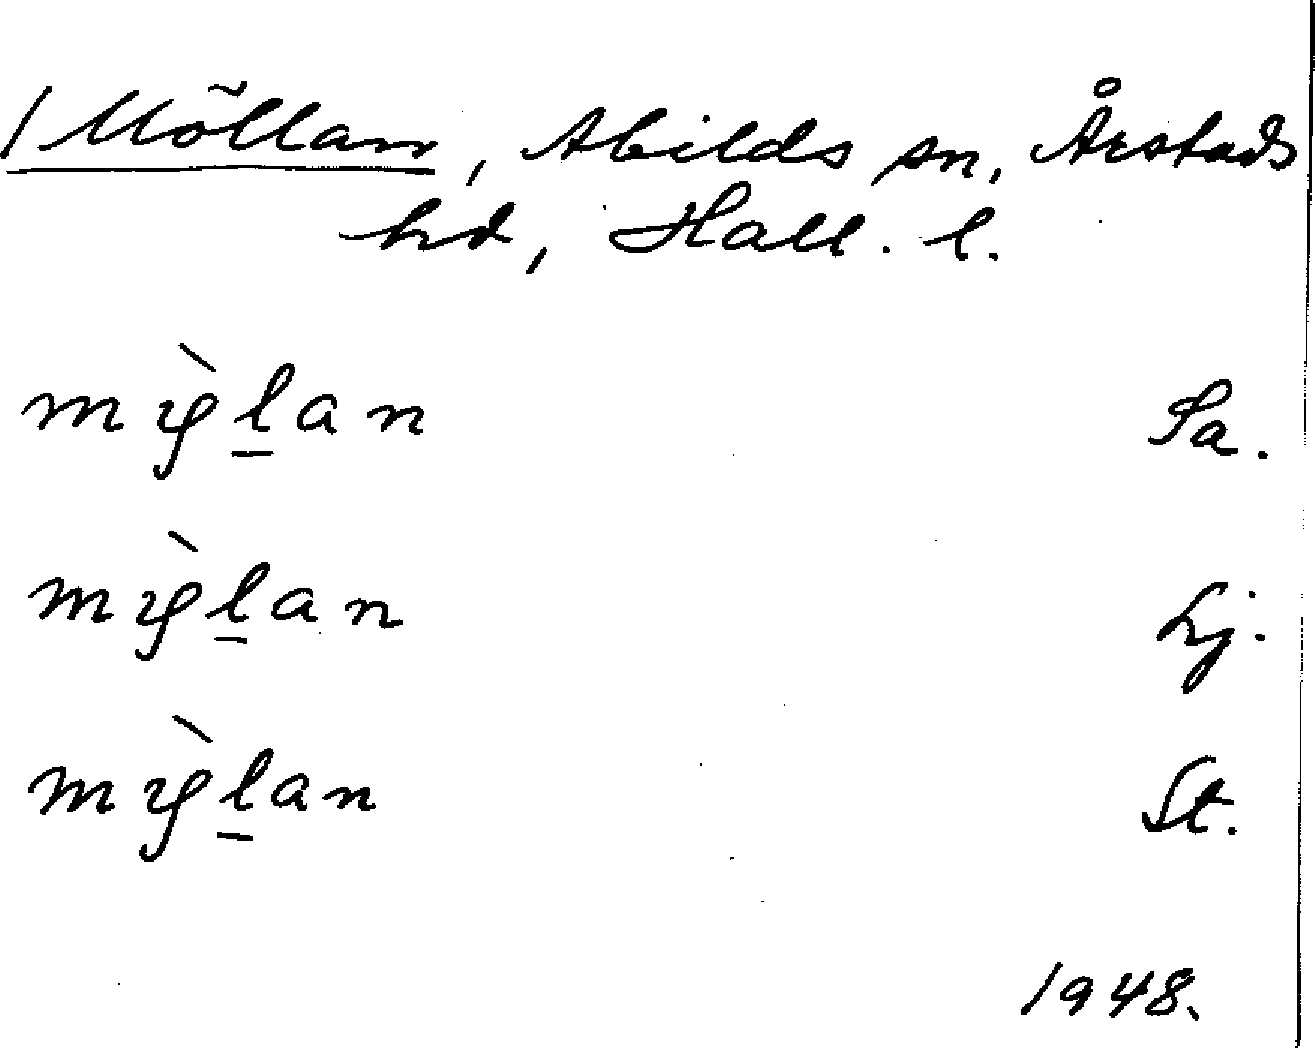 / Möllan, Abilds sn, Årstads
hd, Hall. l.
mỳl̠an Sa.
mỳl̠an Lj.
mỳl̠an St.
1948.